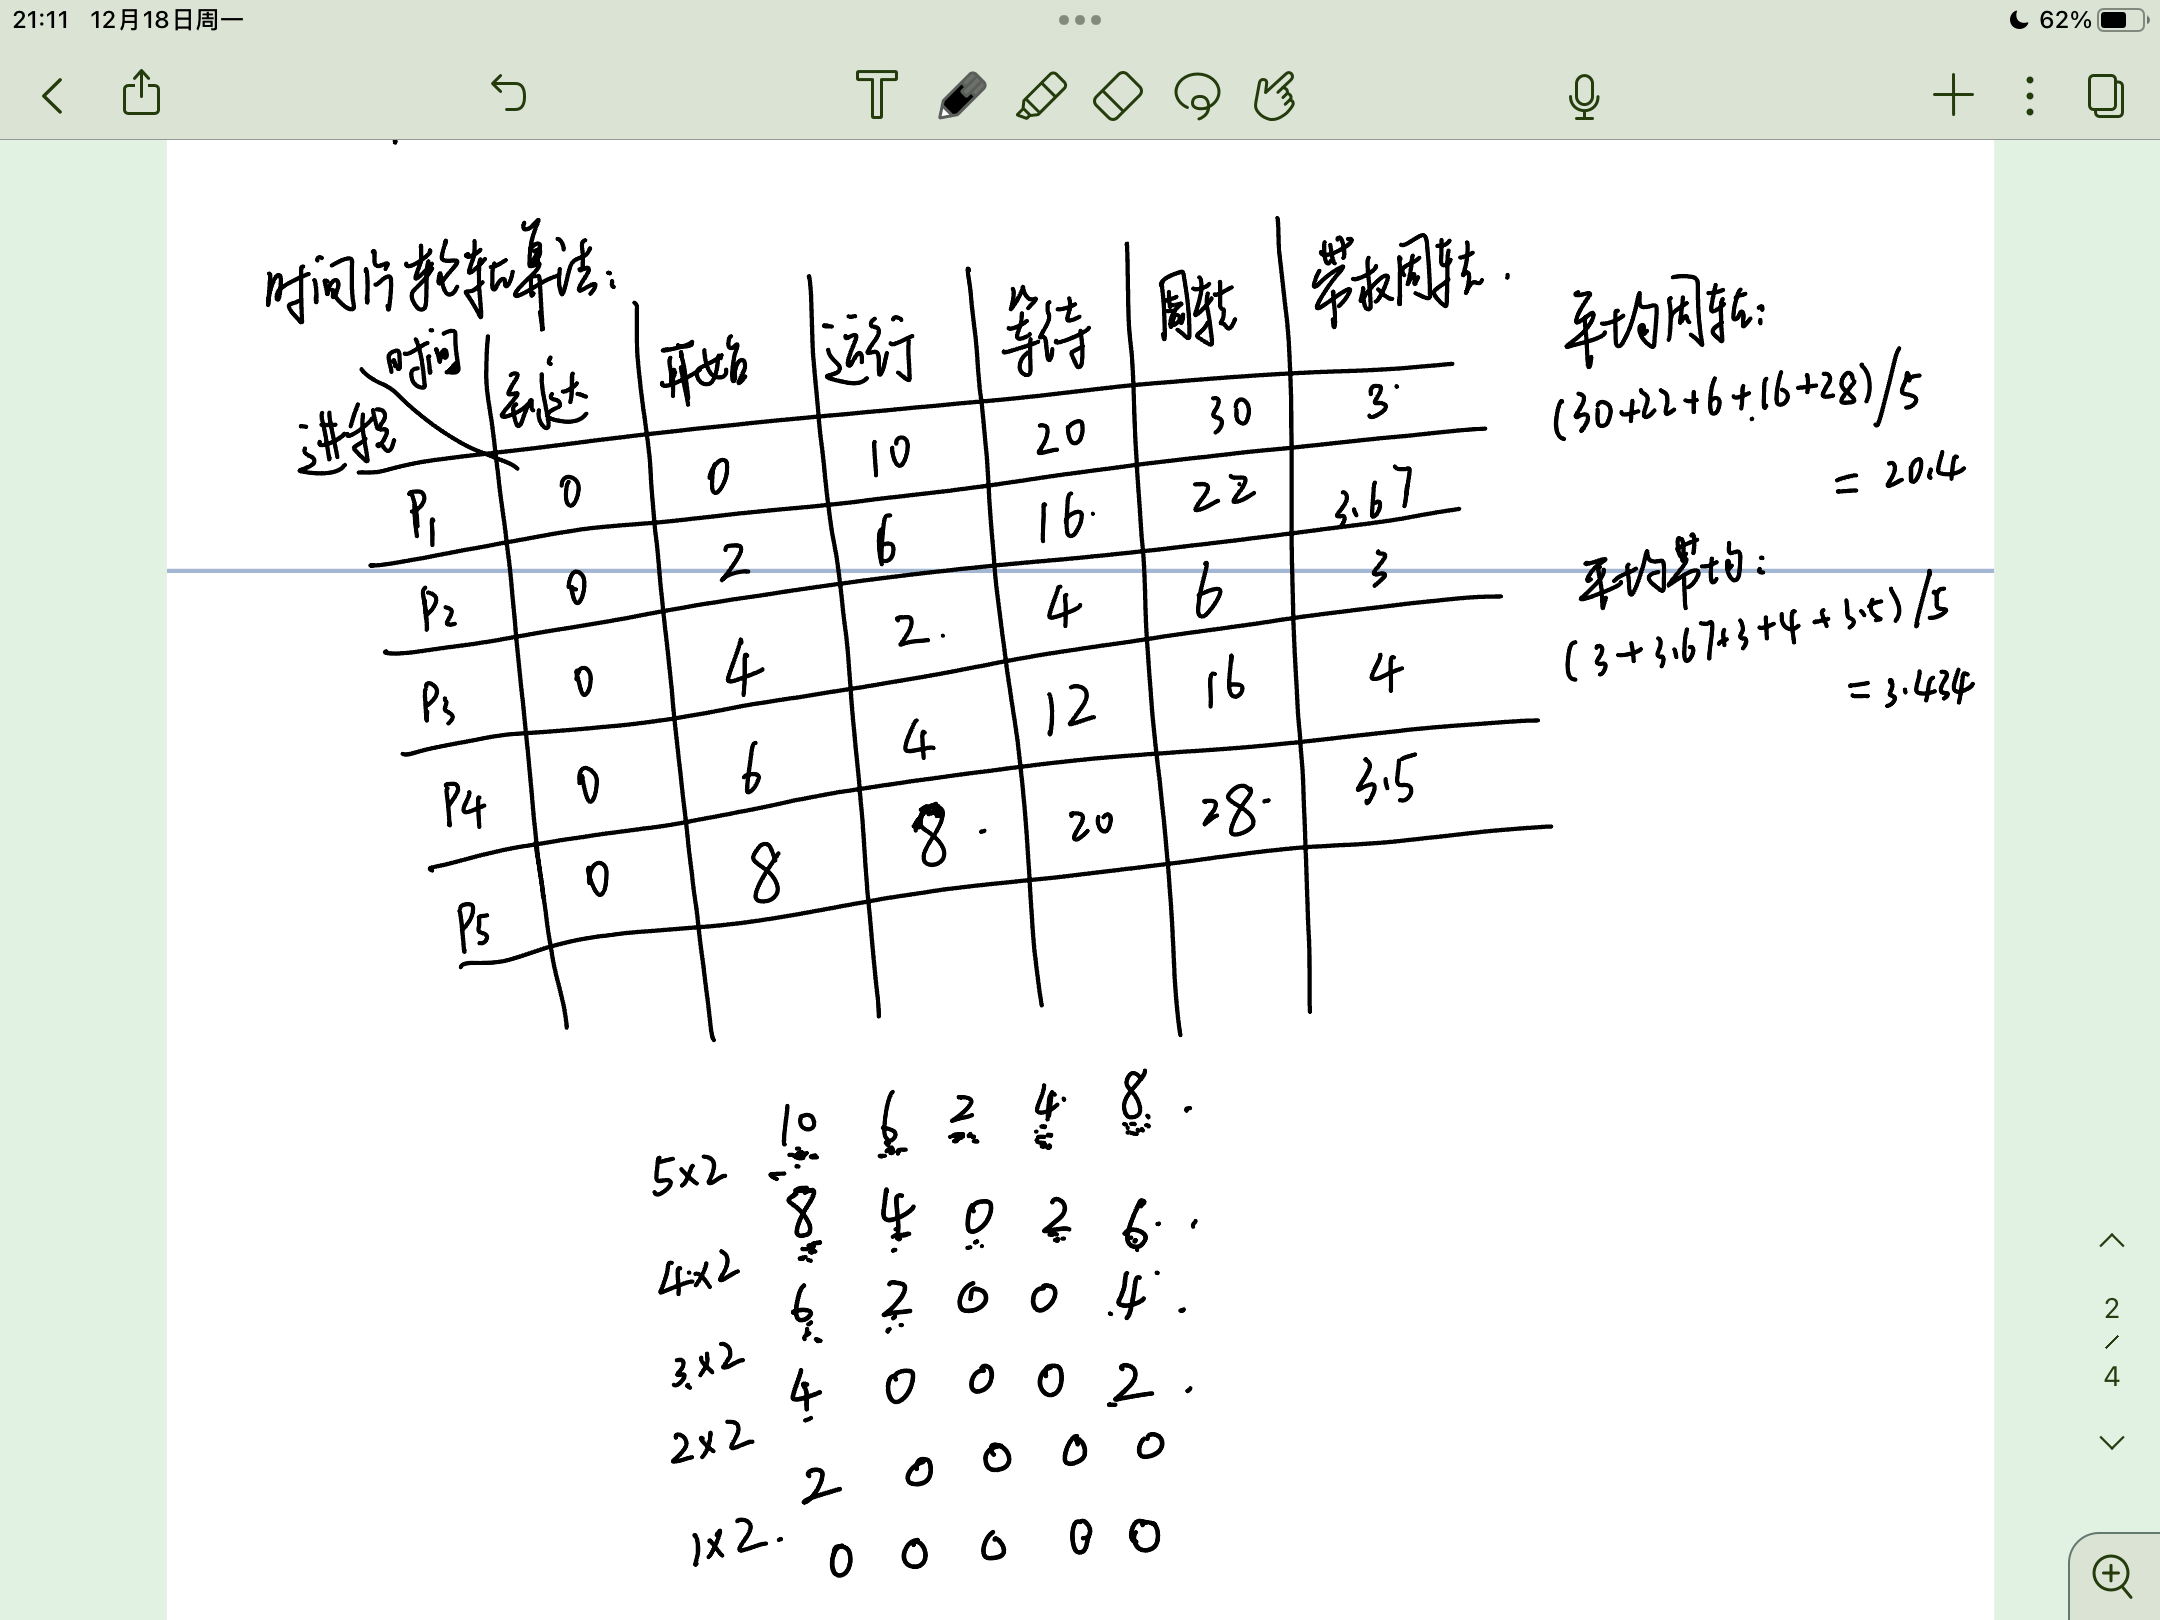 21:11 12月18日周一
62%
T
时间片轮转算法:
时间
进程
到达 开始 运行 等待 周转 带权周转.
P1 0 0 10 20 30 3
P2 0 2 6 16 22 3.67
P3 0 4 2 4 6 3
P4 0 6 4 12 16 4
P5 0 8 8 20 28 3.5
平均周转:
(30+22+6+16+28)/5
= 20.4
平均带均:
(3+3.67+3+4+3.5)/5
= 3.434
10 6 2 4 8
5×2
8 4 0 2 6
4×2
6 2 0 0 4
3×2
4 0 0 0 2
2×2
2 0 0 0 0
1×2
0 0 0 0 0
2
/
4